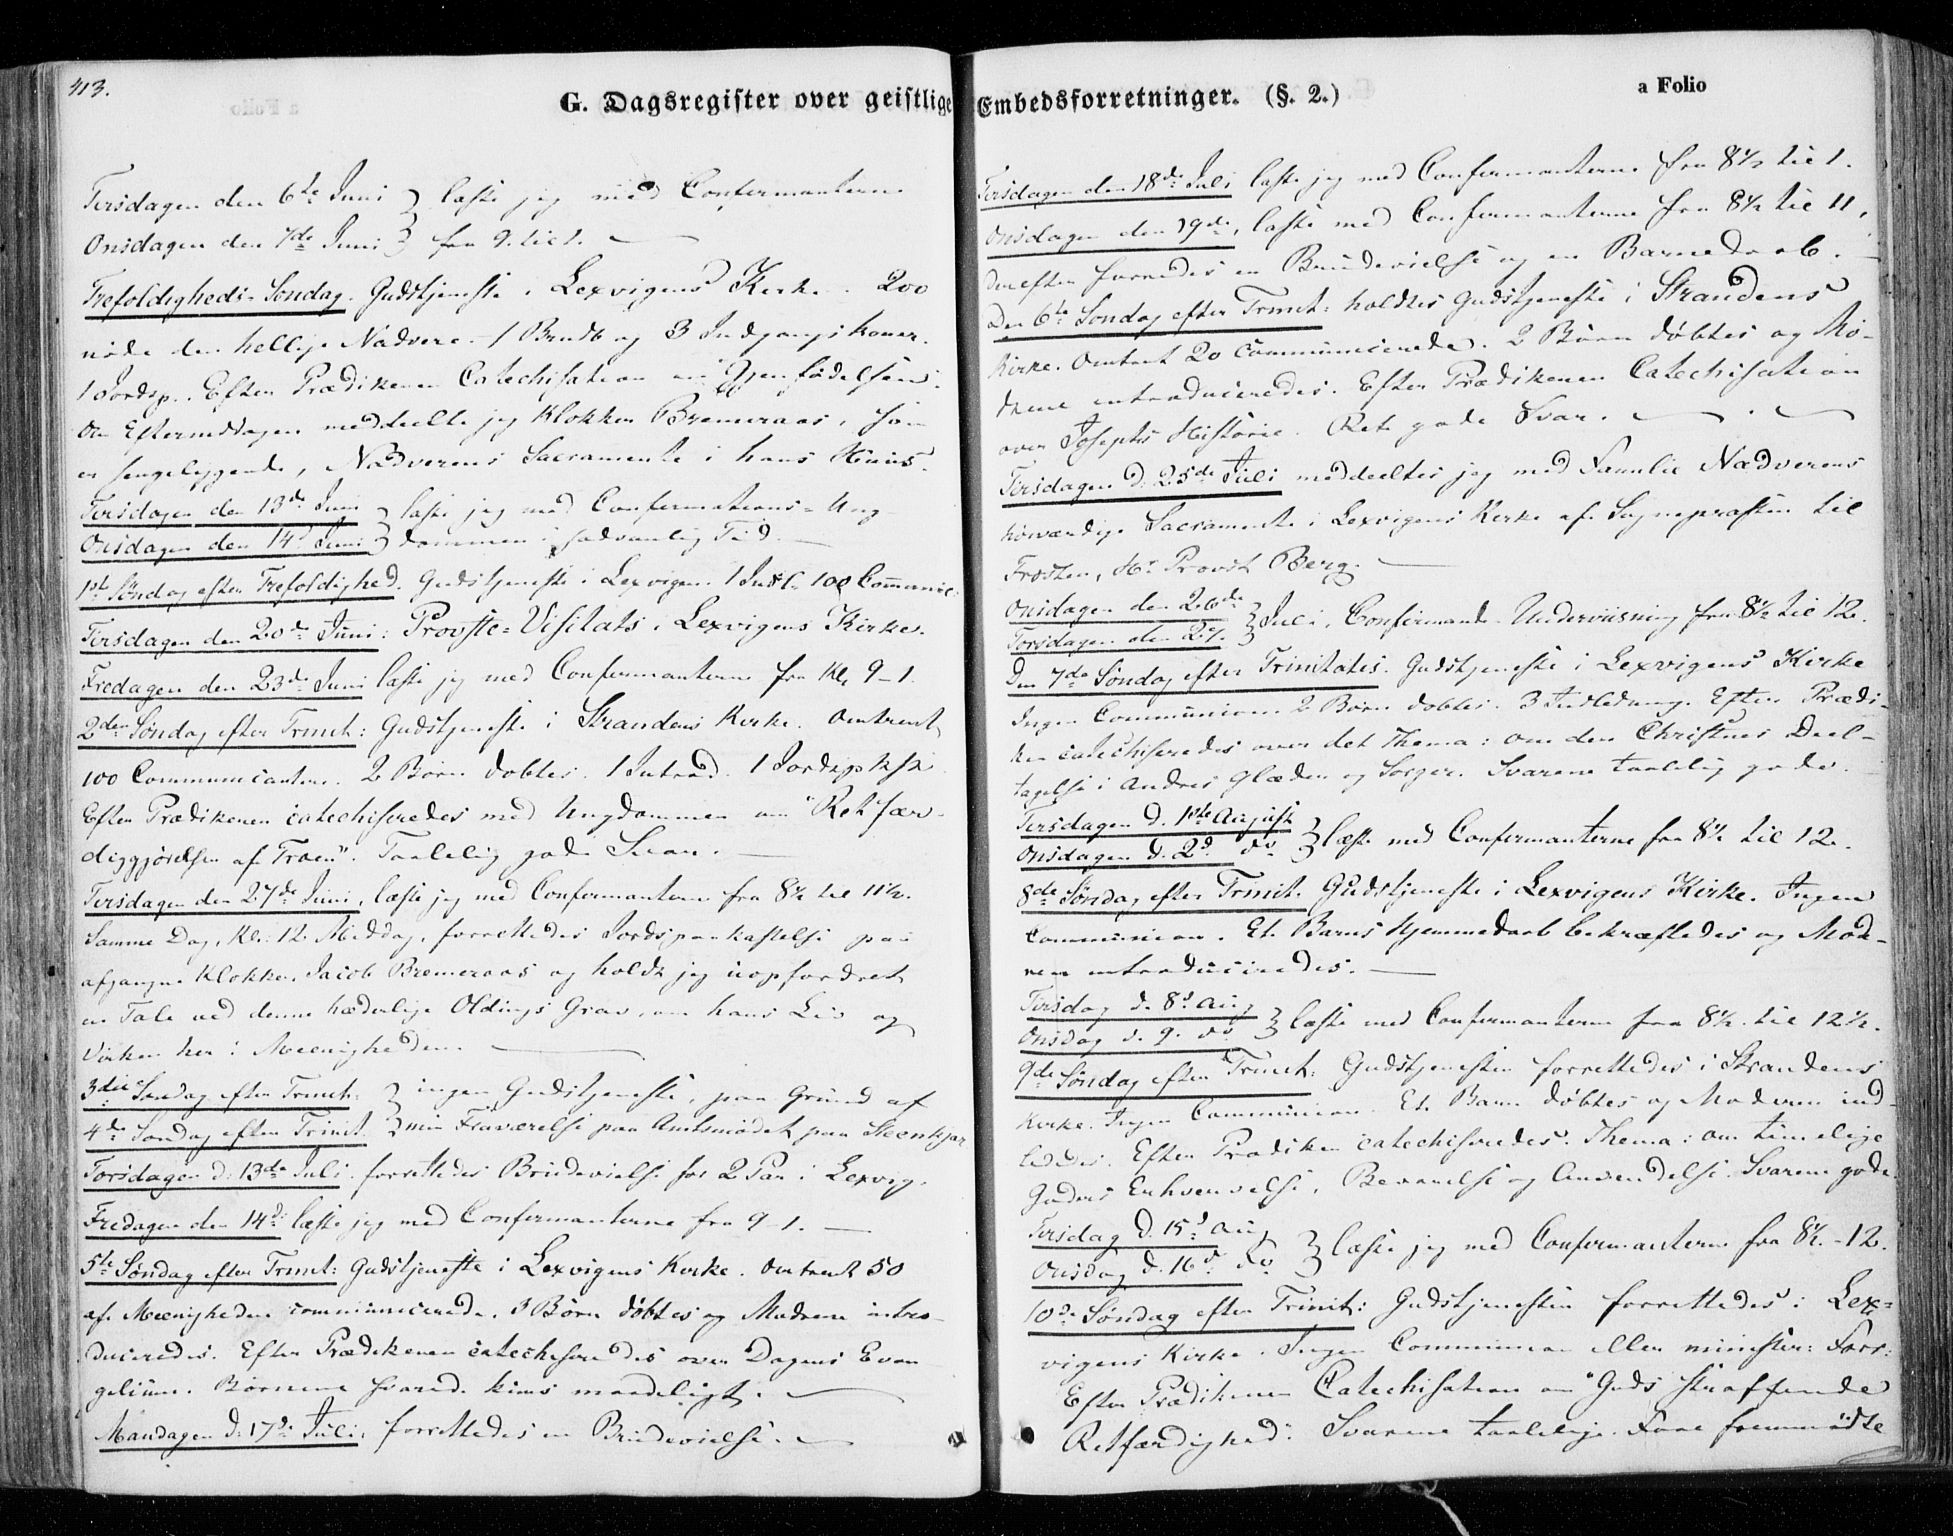 413.
G. Dagsregister over geistlige Embedsforretninger. (§. 2.)
a Folio
Tirsdagen den 6te Juni } læste jeg med Confirmanterne
Onsdagen den 7de Juni } fra 9 til 1.
Trefoldigheds-Søndag. Gudstjeneste i Lexvigens Kirke. 200
nöde den hellige Nadvere. 1 Brudb og 3 Indgangskoner.
1 Jordsp. Efter Prædikenen Catechisation om Igjenfödelsen.
Om Eftermiddagen meddeelte jeg Klokker Bremeraas, som
er sengeliggende, Nadverens Sacramente i hans Huus.
Tirsdagen den 13de Juni } læste jeg med Confirmations-Ung-
Onsdagen den 14d Juni } dommen i sædvanlig Tid.
1ste Søndag efter Trefoldighed. Gudstjeneste i Lexvigen. 1 100 Communic:
Tirsdagen den 20de Juni: Provste-Visitats i Lexvigens Kirke.
Fredagen den 23de Juni læste jeg med Confirmanterne fra Kl. 9-1.
2den Søndag efter Trinit: Gudstjeneste i Strandens Kirke. Omtrent
100 Communicanter. 2 Børn døbtes. 1 Introd. 1 Jordspk
Efter Prædikenen catechiseredes med Ungdommen om "Retfær-
diggjörelsen af Troen". Taalelig gode Svar.
Tirsdagen den 27de Juni, læste jeg med Confirmanterne fra 8½ til 11½.
Samme Dag, Kl. 12 Middag, forrettedes Jordspaakastelse paa
afgangne Klokker Jacob Bremeraas og holdt jeg uopfordret
en Tale ved denne hæderlige Oldings Grav, om hans Liv og
Virken her i Meenigheden.
3die Søndag efter Trinit: } ingen Gudstjeneste, paa Grund af
4de Søndag efter Trinit } min Fraværelse paa Amtsmödet paa Steenkjær
Torsdagen d. 13de Juli forrettedes Brudevielse for 2 Par i Lexvig.
Fredagen den 14d. læste jeg med Confirmanterne fra 9-1.
5te Søndag efter Trinit: Gudstjeneste i Lexvigens Kirke. Omtrent 50
af Meenigheden communicerede. 3 Børn døbtes og Mødrene intro-
duceredes. Efter Prædikenen catechiseredes over Dagens Evan-
gelium. Børnene svarede kuns maadeligt.
Mandagen d. 17de Juli, forrettedes en Brudevielse.
Tirsdagen den 18de Juli læste jeg med Confirmanterne fra 8½ til 1.
Onsdagen den 19de, læste med Confirmanterne fra 8½ til 11,
derefter forrededes en Brudevielse og en Barnedaab.
Den 6te Søndag efter Trinit: holdtes Gudstjeneste i Strandens
Kirke. Omtrent 20 communicerede. 2 Börn döbtes og Mö-
drene introduceredes. Efter Prædikenen Catechisation
over Josephs Historie. Ret gode Svar.
Tirsdagen d. 25de Juli meddeeltes jeg med Familie Nadverens
höiværdige Sacramente i Lexvigens Kirke af Sognepræsten til
Frosten, Hr Provst Berg.
Onsdagen den 26de } Juli, Confirmand-Underviisning fra 8½ til 12.
Torsdagen den 27. }
Den 7de Søndag efter Trinitatis. Gudstjeneste i Lexvigens Kirke
Ingen Communion 2 Børn døbtes. 3 Indledning. Efter Prædi-
ken catechiseredes over det Thema: om den Christnes Deel-
tagelse i Andres Glæder og Sorger. Svarene taalelig gode.
Tirsdagen d. 1ste August } læste med Confirmanterne fra 8½ til 12.
Onsdagen d. 2d. do }
8de Søndag efter Trinit. Gudstjeneste i Lexvigens Kirke. Ingen
Communion. Et Barns Hjemmedaab bekræftedes og Mød-
ren introduceredes.
Tirsdag d. 8d Aug } læste med Confirmanterne fra 8½ til 12½.
Onsdag d. 9. do }
9de Søndag efter Trinit: Gudstjenesten forrettedes i Strandens
Kirke. Ingen Communion. Et Barn døbtes og Moderen ind-
lededes. Efter Prædiken catechiseredes. Thema: om timelige
Goders Erhvervelse, Bevarelse og Anvendelse. Svarene gode.
Tirsdag d. 15d Aug } læste jeg med Confirmanterne fra 8½-12.
Onsdag d. 16d. do }
10de Søndag efter Trinit: Gudstjenesten forrettedes i Lex-
vigens Kirke. Ingen Communion eller minister: Forr:
Efter Prædikenen Catechisation om "Guds straffende
Retfærdighed". Svarene taalelige. Faae fremmødte